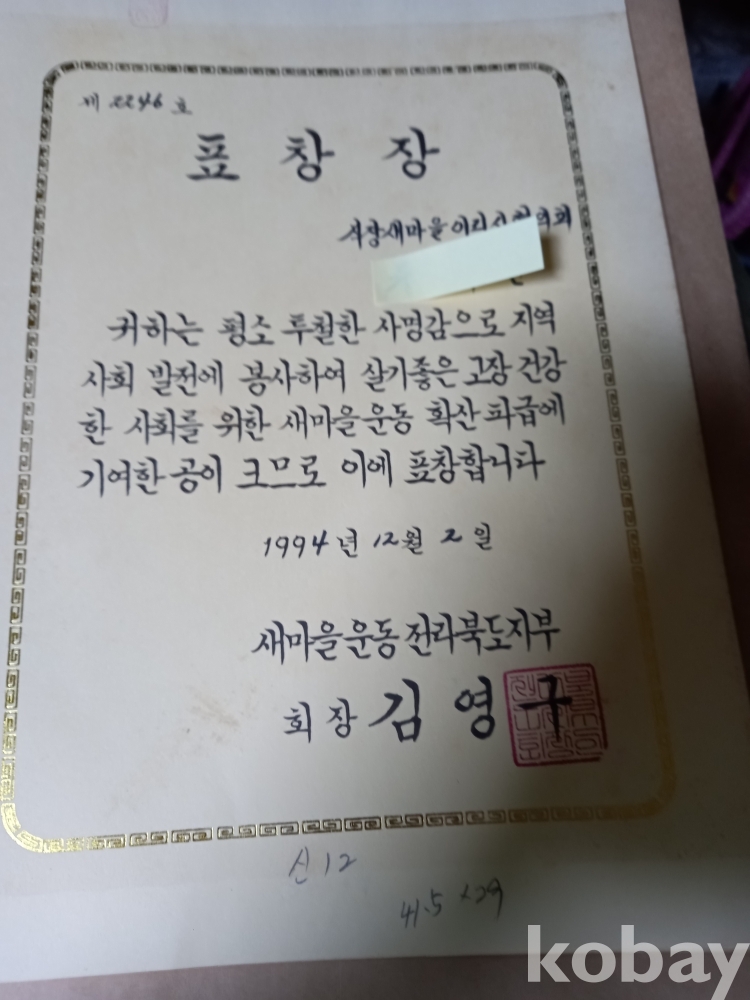 제 2246 호
표 창 장
직장새마을이리시협의회
귀하는 평소 투철한 사명감으로 지역
사회 발전에 봉사하여 살기좋은 고장 건강
한 사회를 위한 새마을운동 확산 파급에
기여한 공이 크므로 이에 표창합니다
1994년 12월 2일
새마을운동전라북도지부
회장 김영구
신12
41.5 x29
kobay